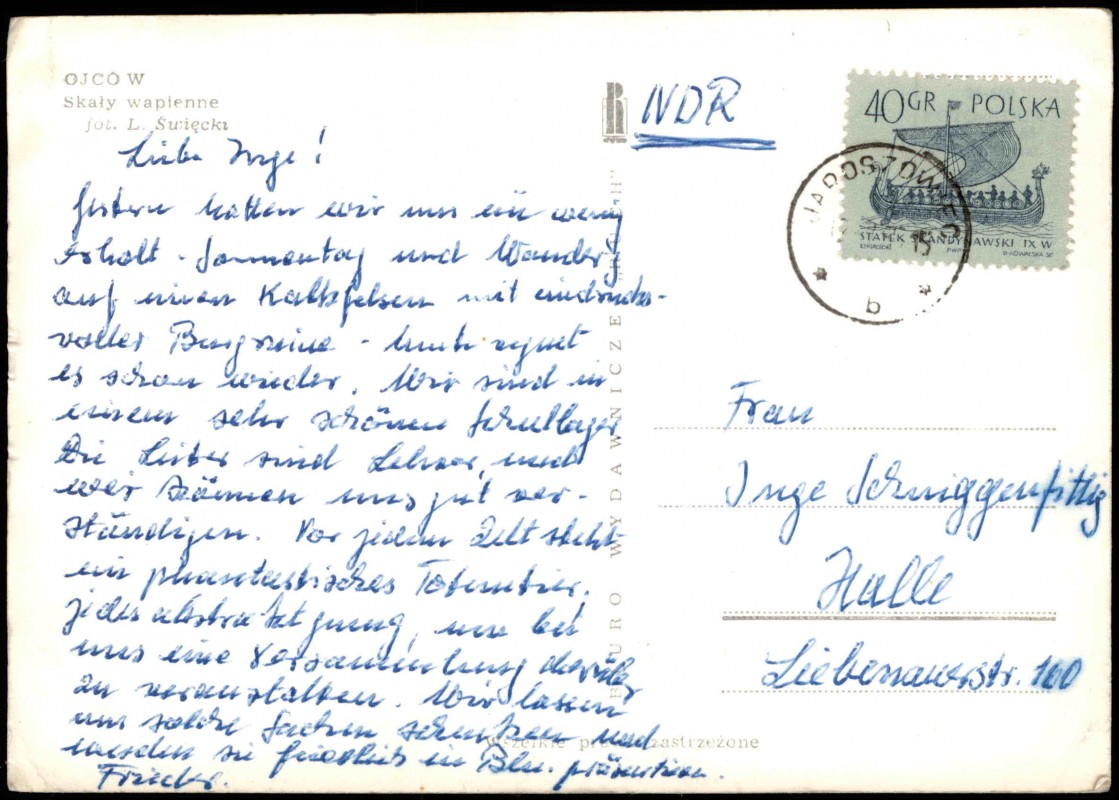 OJCÓW
Skały wapienne
fot. L. Święcki
Liebe Inge!
Gestern hatten wir uns ein wenig
erholt - Sonnentag und Wanderg
auf einen Kalkfelsen mit eindrucks-
voller Burgruine - heute regnet
es schon wieder. Wir sind in
einem sehr schönen Schullager
Die Leiter sind Lehrer, und
wir können uns gut ver-
ständigen. Vor jedem Zelt steht
ein phantastisches Totemtier,
jedes abstrakt genug, um bei
uns eine Versammlung darüber
zu veranstalten. Wir lassen
uns solche Sachen schenken und
werden sie friedlich in Bln. präsentieren.
BIURO WYDAWNICZE „RUCH"
Wszelkie prawa zastrzeżone
NDR
40GR POLSKA
STATEK SKANDYNAWSKI IX W
JAROSZOWIEC
15
b
Frau
Inge Schniggenfittig
Halle
Liebenauerstr. 160